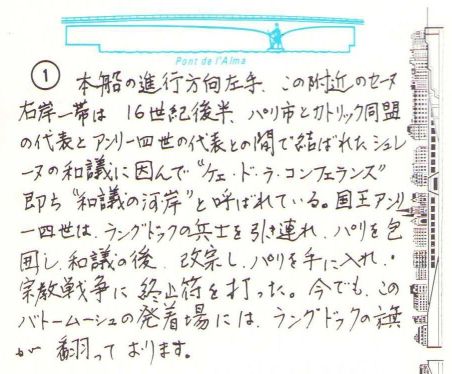 Pont de l'Alma
① 本船の進行方向左手、この附近のセーヌ
右岸一帯は 16世紀後半、パリ市とカトリック同盟
の代表とアンリー四世の代表との間で結ばれたシュレ
ーヌの和議に因んで“ケェ・ド・ラ・コンフェランス”
即ち“和議の河岸”と呼ばれている。国王アンリ
ー四世は、ラングドックの兵士を引き連れ、パリを包
囲し、和議の後、改宗し、パリを手に入れ、
宗教戦争に終止符を打った。今でも、この
バトームーシュの発着場には、ラングドックの旗
が 翻って おります。